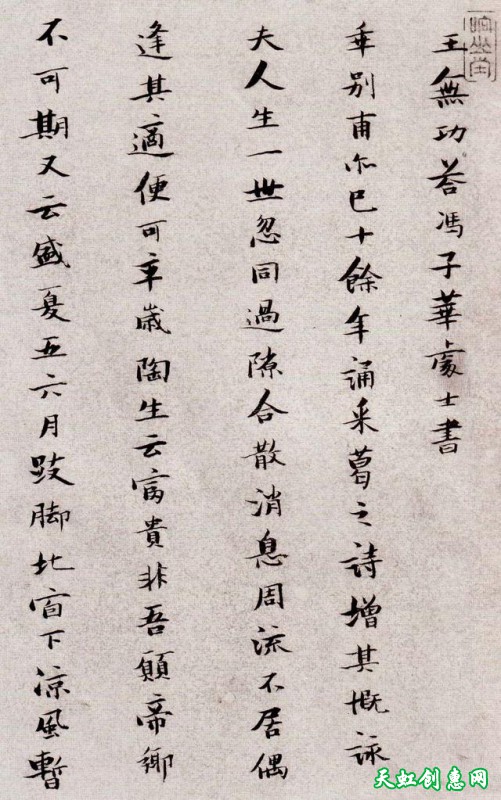 王無功荅馮子華處士書
乖別甫尓已十餘年誦采葛之詩增其慨詠
夫人生一世忽同過隙合散消息周流不居偶
逢其適便可卒歲陶生云富貴非吾願帝鄉
不可期又云盛夏五六月跂脚北窗下涼風暫
天虹创惠网